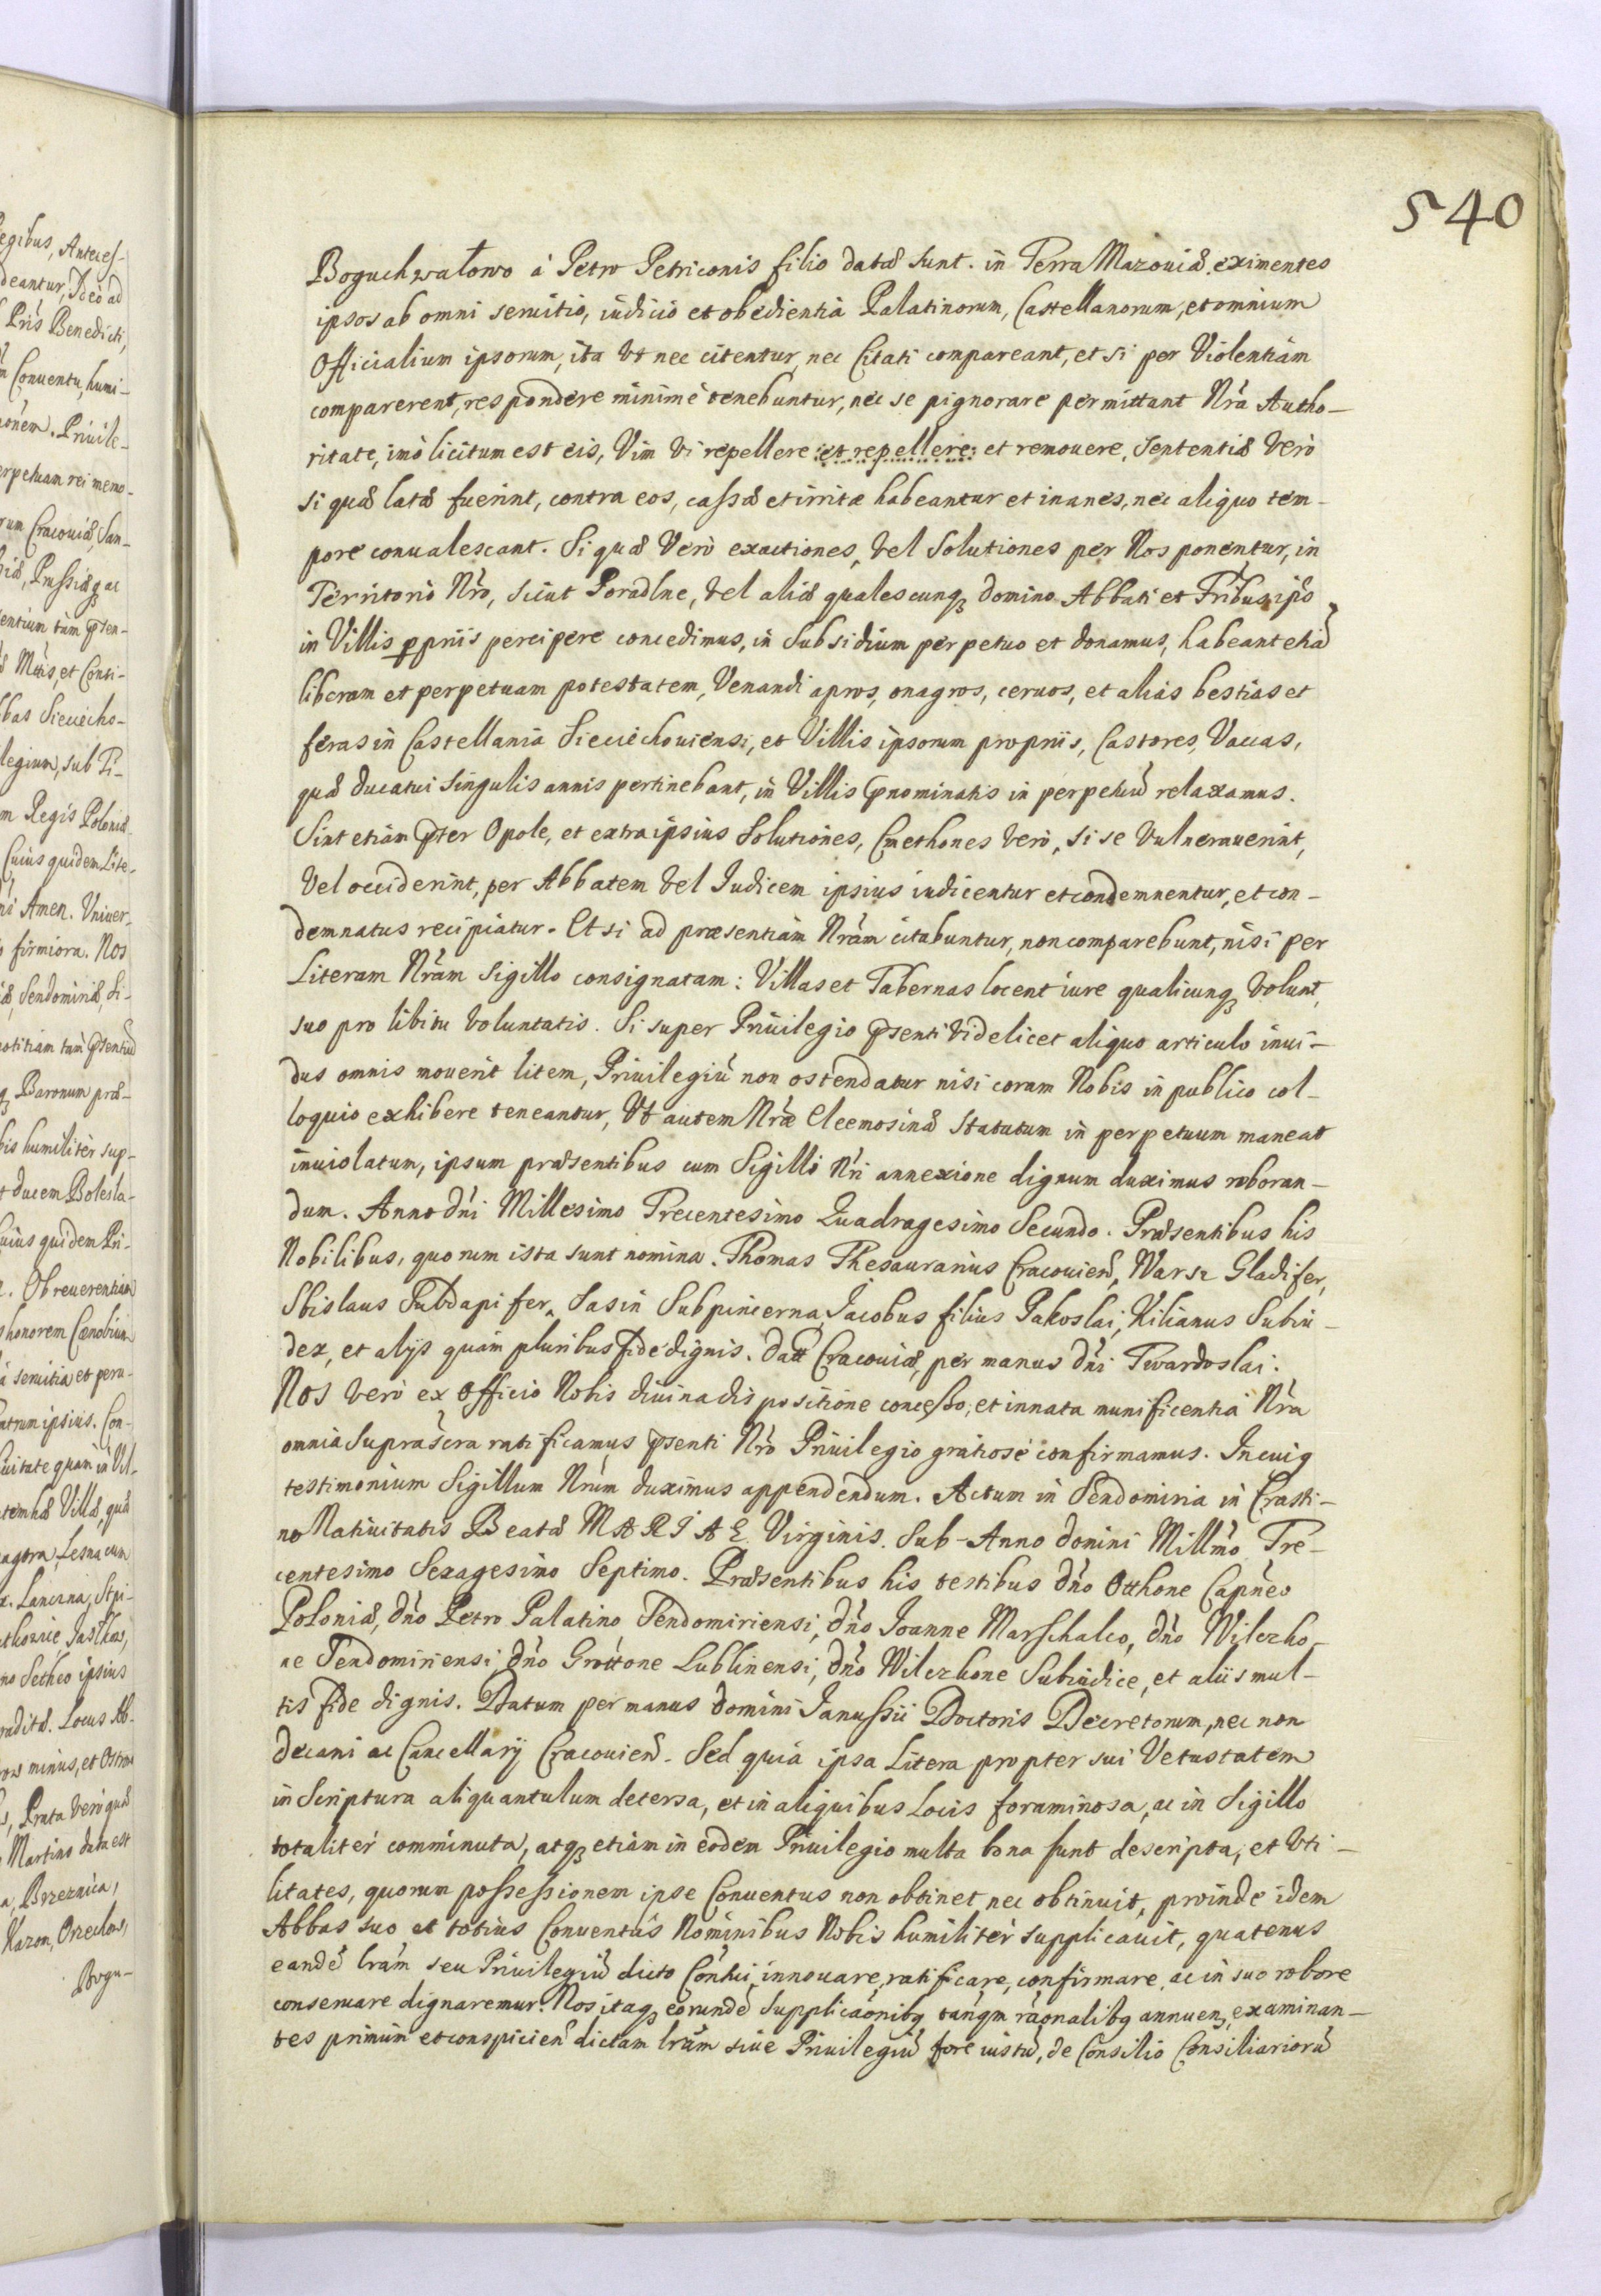 540
Boguchwałowo á Petro Petriconis filio datæ sunt. in Terra Mazouiæ. eximentes
ipsos ab omni seruitio, iudicio et obedientia Palatinorum, Castellanorum, et omnium
Officialium ipsorum, ita Vt nec citentur, nec Citati compareant, et si per Violentiam
comparerent, respondere minimè tenebuntur, nec se pignorare permittant Nrã Autho-
ritate, imò licitum est eis, Vim Vi repellere et repellere et remouere, Sententiæ Verò
si quæ latæ fuerint, contra eos, cassæ et irritæ habeantur et inanes, nec aliquo tem-
pore conualescant. Si quæ Verò exactiones, Vel Solutiones per Nos ponentur, in
Territorio Nrõ, sicut Poradlne, Vel aliæ qualescunqꝫ domino Abbati et Fribus ips̃
in Villis ꝓpriis percipere concedimus, in Subsidium perpetuo et donamus, habeant etiã
liberam et perpetuam potestatem, Venandi apros, onagros, ceruos, et alias bestias et
feras in Castellania Sieciechouiensi, et Villis ipsorum propriis, Castores, Vaccas,
quæ ducatui singulis annis pertinebant, in Villis p̃nominatis in perpetuũ relaxamus.
Sint etiam p̃ter Opole, et extra ipsius Solutiones, Cmethones Verò, si se Vulnerauerint,
Vel occiderint, per Abbatem Vel Iudicem ipsius iudicentur et condemnentur, et con-
demnatus recipiatur. Et si ad præsentiam Nrãm citabuntur, non comparebunt, nisi per
Literam Nrãm Sigillo consignatam: Villas et Tabernas locent iure qualicunqꝫ Volunt,
suo pro libitu Voluntatis. Si super Priuilegio p̃senti Videlicet aliquo articulo inui-
dus omnis mouerit litem, Priuilegiũ non ostendatur nisi coram Nobis in publico col-
loquio exhibere teneantur, Vt autem Nræ Eleemosinæ Statutum in perpetuum maneat
inuiolatum, ipsum præsentibus cum Sigilli Nri annexione dignum duximus roboran-
dum. Anno dńi Millesimo Trecentesimo Quadragesimo Secundo. Præsentibus his
Nobilibus, quorum ista sunt nomina. Thomas Thesaurarius Cracouień, Warsz Gladifer,
Sbislaus Subdapifer, Sasin Subpincerna, Jacobus filius Jakoslai, Kilianus Subiu-
dex, et alijs quàm pluribus fide dignis. Datt Cracouiæ, per manus dńi Twardoslai.
Nos Verò ex Officio Nobis diuina dispositione concesso, et innata munificentia Nrã
omnia supras̃cra ratificamus p̃senti Nrõ Priuilegio gratiosè confirmamus. In cuiꝗ
testimonium Sigillum Nrũm duximus appendendum. Actum in Sendomiria in Crasti-
no Natiuitatis Beatæ MARIAE Virginis. Sub-Anno Domini Millm̃o Tre-
centesimo Sexagesimo Septimo. Præsentibus his testibus dńo Otthone Capńeo
Poloniæ, dńo Petro Palatino Sendomiriensi, dńo Joanne Marschalco, dńo Wilczko-
ne Sendomiriensi, dńo Grottone Lublinensi, dńo Wilczkone Subiudice, et aliis mul-
tis fide dignis. Datum per manus Domini Janussii Doctoris Decretorum, nec non
decani ac Cancellarij Cracouień. Sed quia ipsa Litera propter sui Vetustatem
in Scriptura aliquantulum detersa, et in aliquibus Locis foraminosa, ac in Sigillo
totaliter comminuta, atqꝫ etiam in eodem Priuilegio multa bona sunt descripta, et Vti-
litates, quorum possessionem ipse Conuentus non obtinet, nec obtinuit, proinde idem
Abbas suo et totius Conuentûs Nominibus Nobis humiliter supplicauit, quatenus
eandẽ lrãm seu Priuilegiũ dicto Contui, innouare, ratificare, confirmare ac in suo robore
conseruare dignaremur. Nos itaqꝫ eorundẽ Supplicaõnibꝗ tanqm̃ raõnalibꝗ annueñ, examinan-
tes primùm et conspicień dictam lrãm siue Priuilegiũ fore iustũ, de Consilio Consiliariorũ